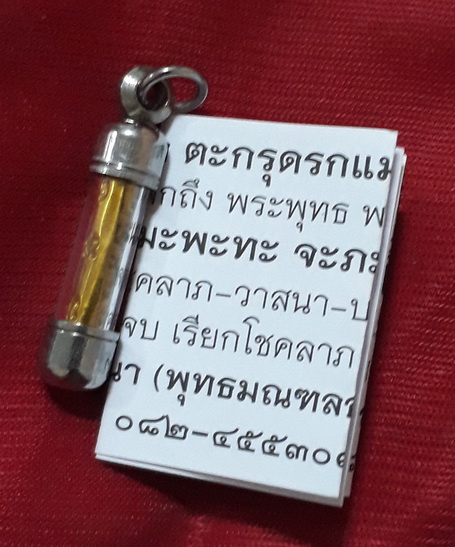 ตะกรุดรกแม
กถึง พระพุทธ พ
มะพะทะ จะภะ
คลาภ-วาสนา-บ
จบ เรียกโชคลาภ
นา (พุทธมณฑลส
๐๘๒-๔๕๕๓๐